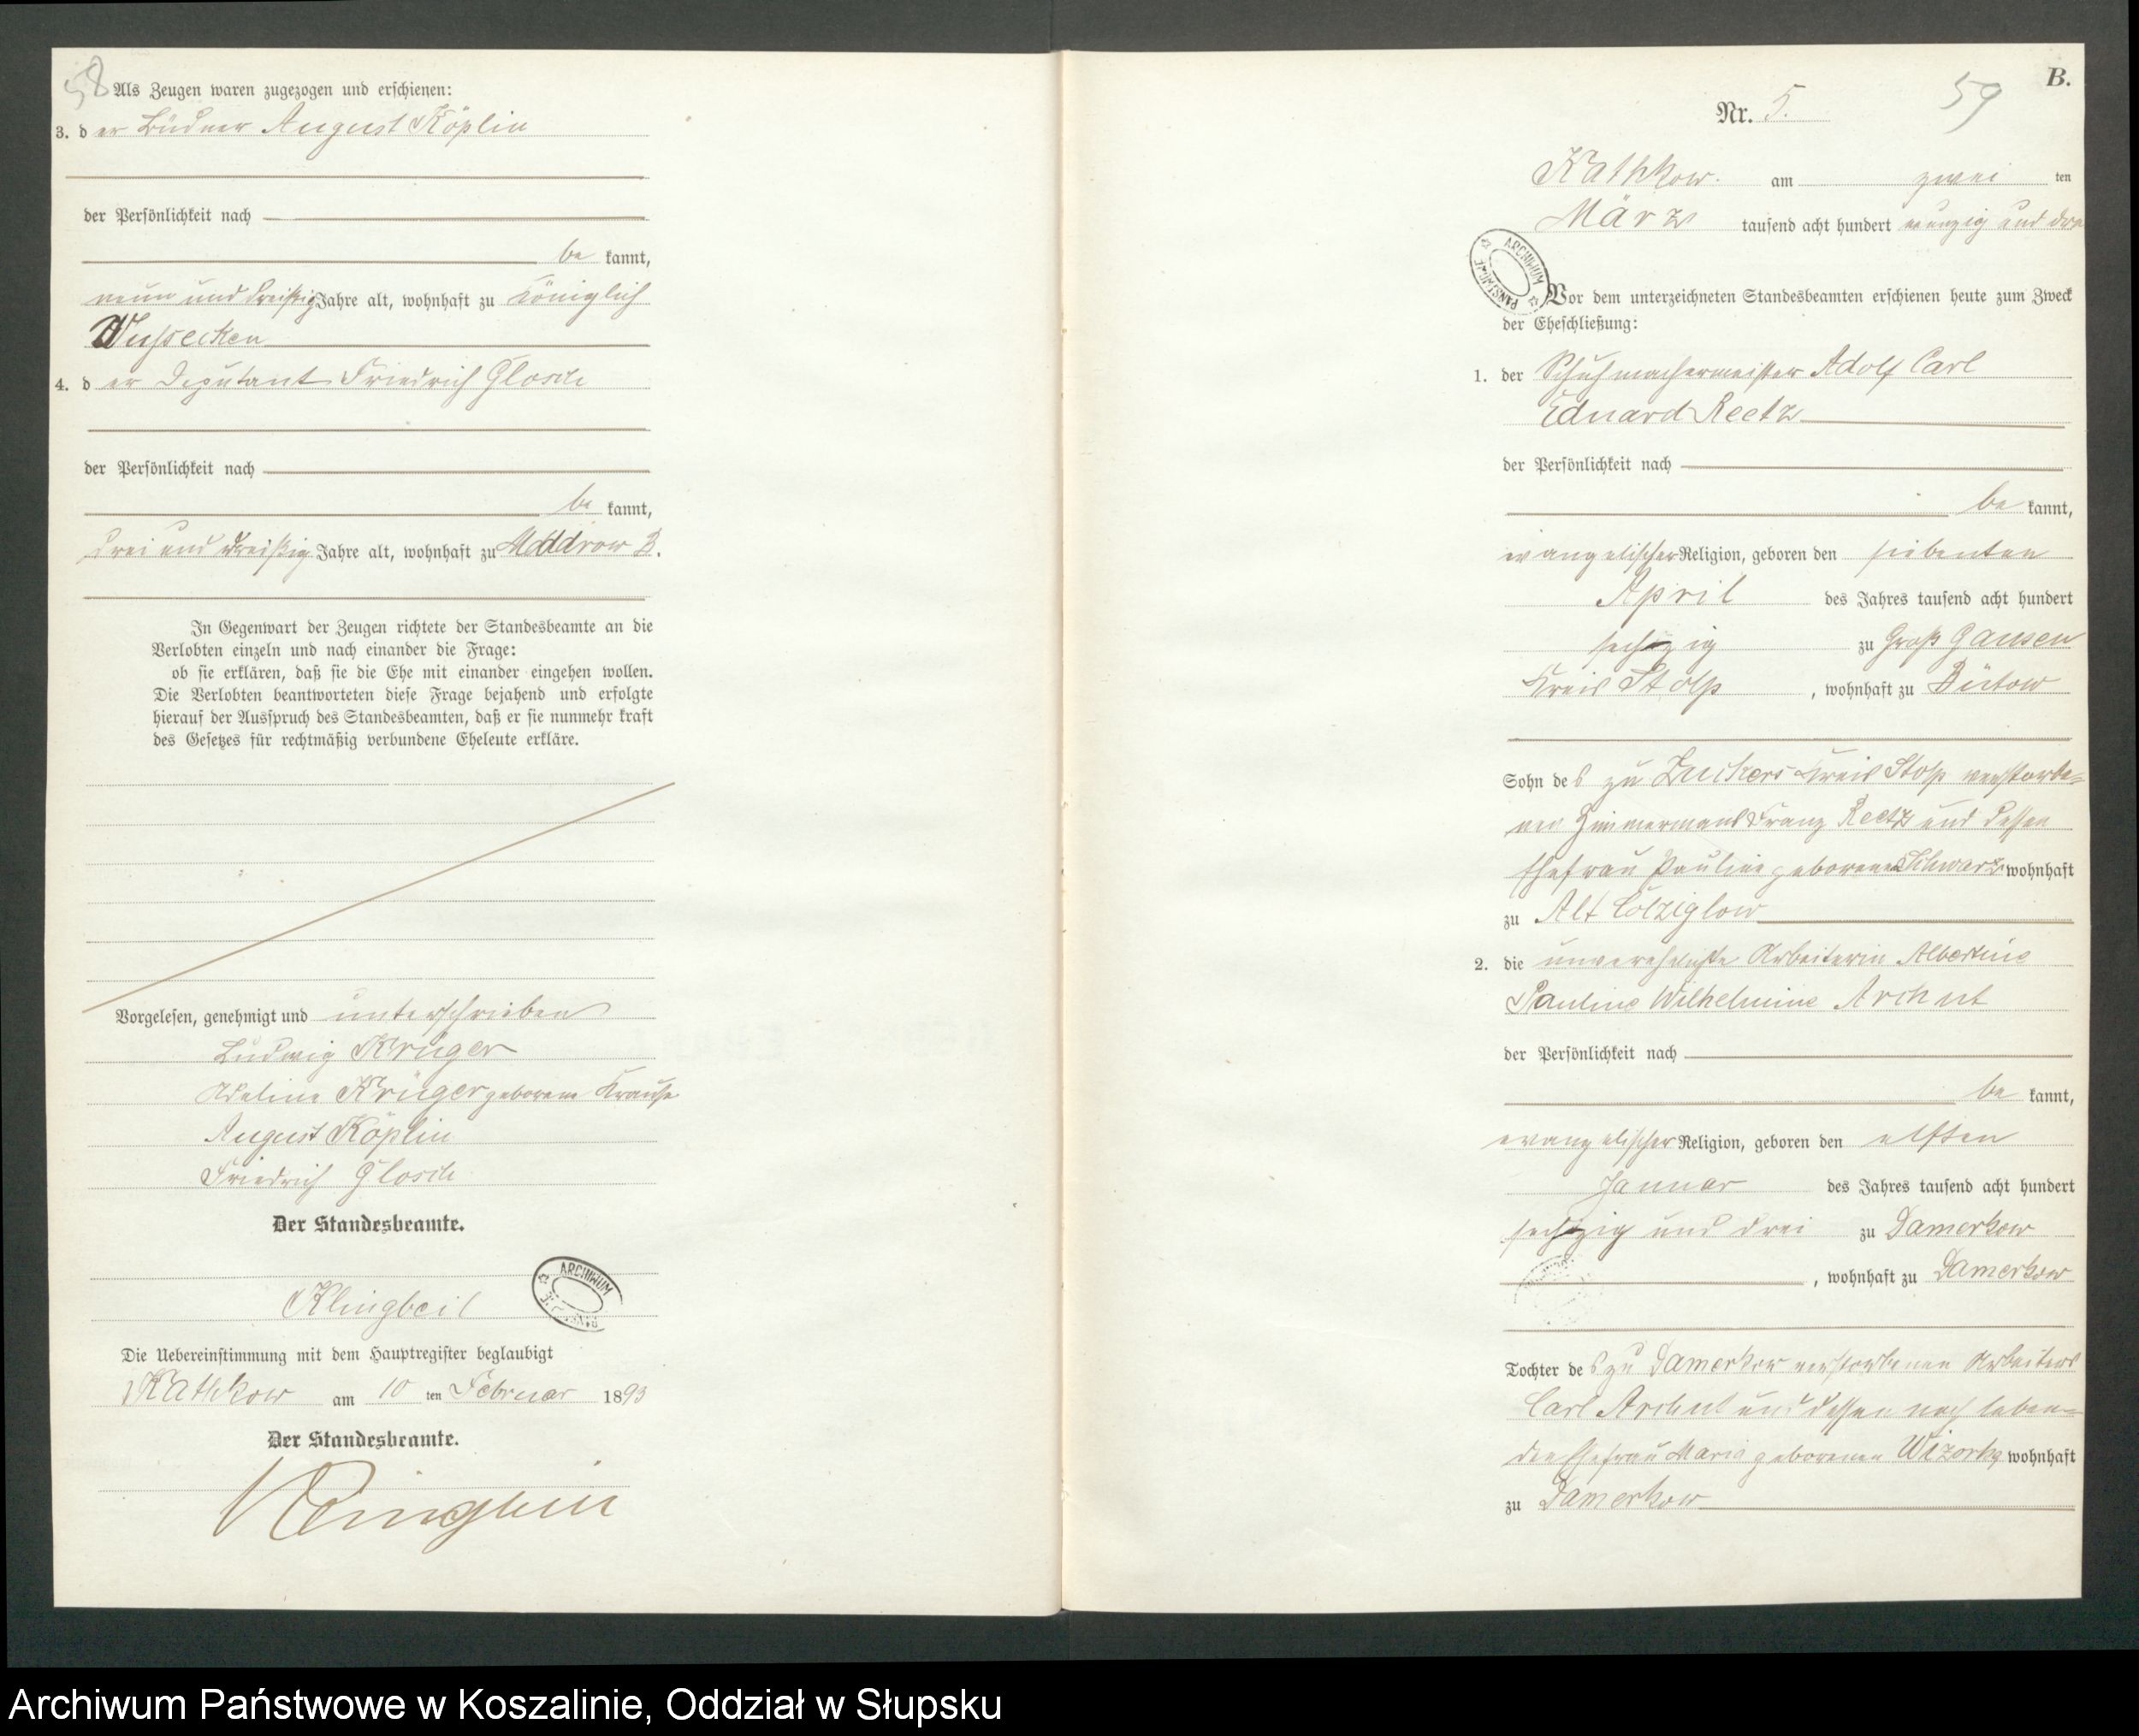 58
Als Zeugen waren zugezogen und erschienen:
3. der Büdner August Köplin
der Persönlichkeit nach
be kannt,
neun und dreißig Jahre alt, wohnhaft zu Königlich
Wussecken
4. der Deputant Friedrich Glosch
der Persönlichkeit nach
be kannt,
drei und dreißig Jahre alt, wohnhaft zu Moddrow B.
In Gegenwart der Zeugen richtete der Standesbeamte an die
Verlobten einzeln und nach einander die Frage:
ob sie erklären, daß sie die Ehe mit einander eingehen wollen.
Die Verlobten beantworteten diese Frage bejahend und erfolgte
hierauf der Ausspruch des Standesbeamten, daß er sie nunmehr kraft
des Gesetzes für rechtmäßig verbundene Eheleute erkläre.
Vorgelesen, genehmigt und unterschrieben
Ludwig Krüger
Krüger geborene Krause
August Köplin
Friedrich Glosch
Der Standesbeamte.
Klingbeil
ARCHIWUM
Die Uebereinstimmung mit dem Hauptregister beglaubigt
Kathkow am 10 ten Februar 1893
Der Standesbeamte.
Klingbeil
B.
59
Nr. 5.
Kathkow. am zwei ten
März tausend acht hundert neunzig und drei
ARCHIWUM PAŃSTWOWE
Vor dem unterzeichneten Standesbeamten erschienen heute zum Zweck
der Eheschließung:
1. der Schuhmachermeister Adolf Carl
Eduard Reetz
der Persönlichkeit nach
be kannt,
evangelischer Religion, geboren den siebenten
April des Jahres tausend acht hundert
sechzig zu Groß Gansen
Kreis Stolp , wohnhaft zu Bütow
Sohn des zu Zuckers Kreis Stolp verstorbe=
nen Zimmermanns Franz Reetz und dessen
Ehefrau Pauline geborenen Schwarz wohnhaft
zu Alt Colziglow
2. die unverehelichte Arbeiterin Albertine
Pauline Wilhelmine Archut
der Persönlichkeit nach
be kannt,
evangelischer Religion, geboren den elften
Januar des Jahres tausend acht hundert
sechzig und drei zu Damerkow
, wohnhaft zu Damerkow
Tochter des zu Damerkow verstorbenen Arbeiters
Carl Archut und dessen noch leben=
den Ehefrau Marie geborenen Wizorky wohnhaft
zu Damerkow
Archiwum Państwowe w Koszalinie, Oddział w Słupsku